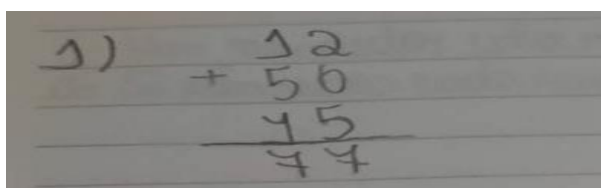 1) 12
+ 50
15
77